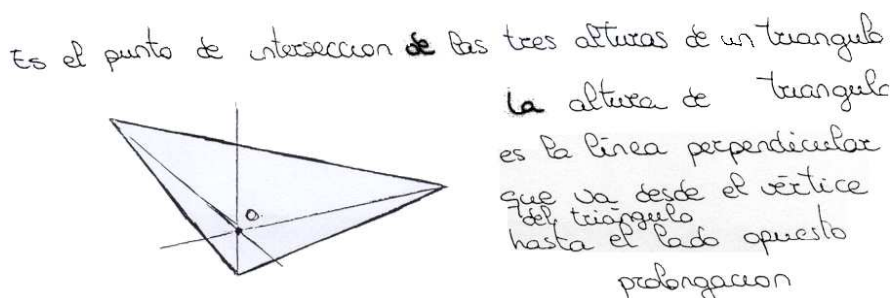 Es el punto de interseccion de las tres alturas de un triangulo
la altura de triangulo
es la línea perpendicular
que va desde el vértice
del triángulo
hasta el lado opuesto
prolongacion
O